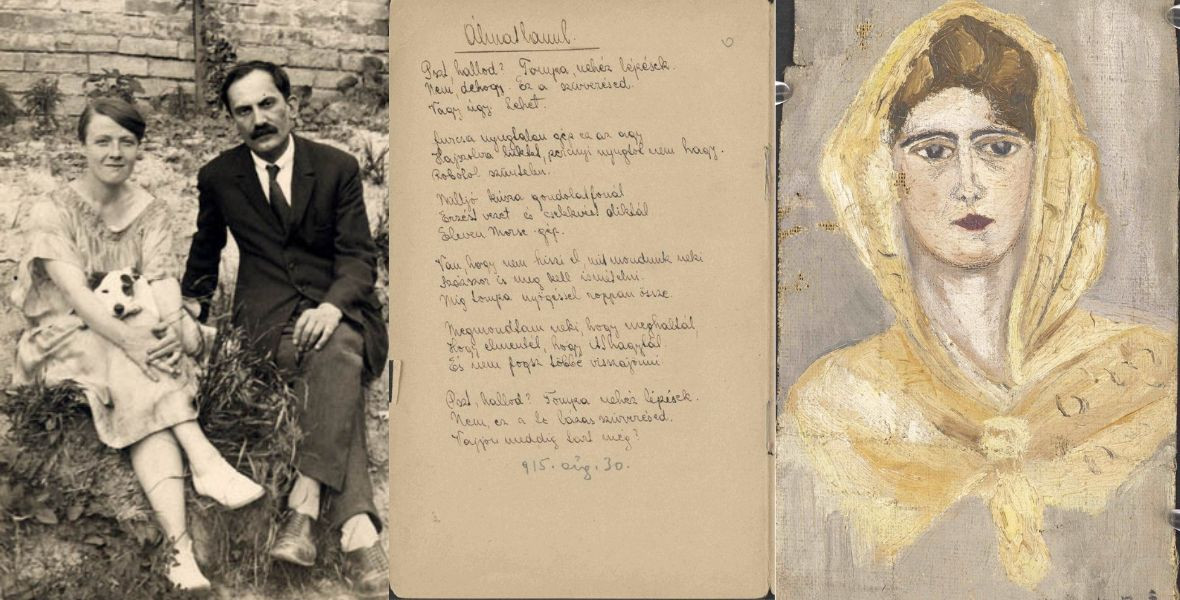 Álmatlanul.
Pszt, hallod? Tompa, nehéz lépések.
Nem dehogy. Ez a szívverésed.
Vagy úgy lehet.
furcsa nyugtalan gép ez az agy
Hajszolva lüktet, percnyi nyugtot nem hagy.
Robotol szüntelen.
Milljó kúsza gondolatfonál
Érzés vezet és diktál
Eleven Morse-gép.
Van, hogy nem hiszi el mit mondunk neki
Százszor is meg kell ismételni.
Míg tompa nyögéssel roppan össze.
Megmondtam neki, hogy meghaltál
Hogy elmentél, hogy itthagytál
És nem fogsz többé visszajönni
Pszt, hallod? Tompa nehéz lépések.
Nem, ez a te lázas szívverésed.
Vajjon meddig tart még?
915. aug. 30.